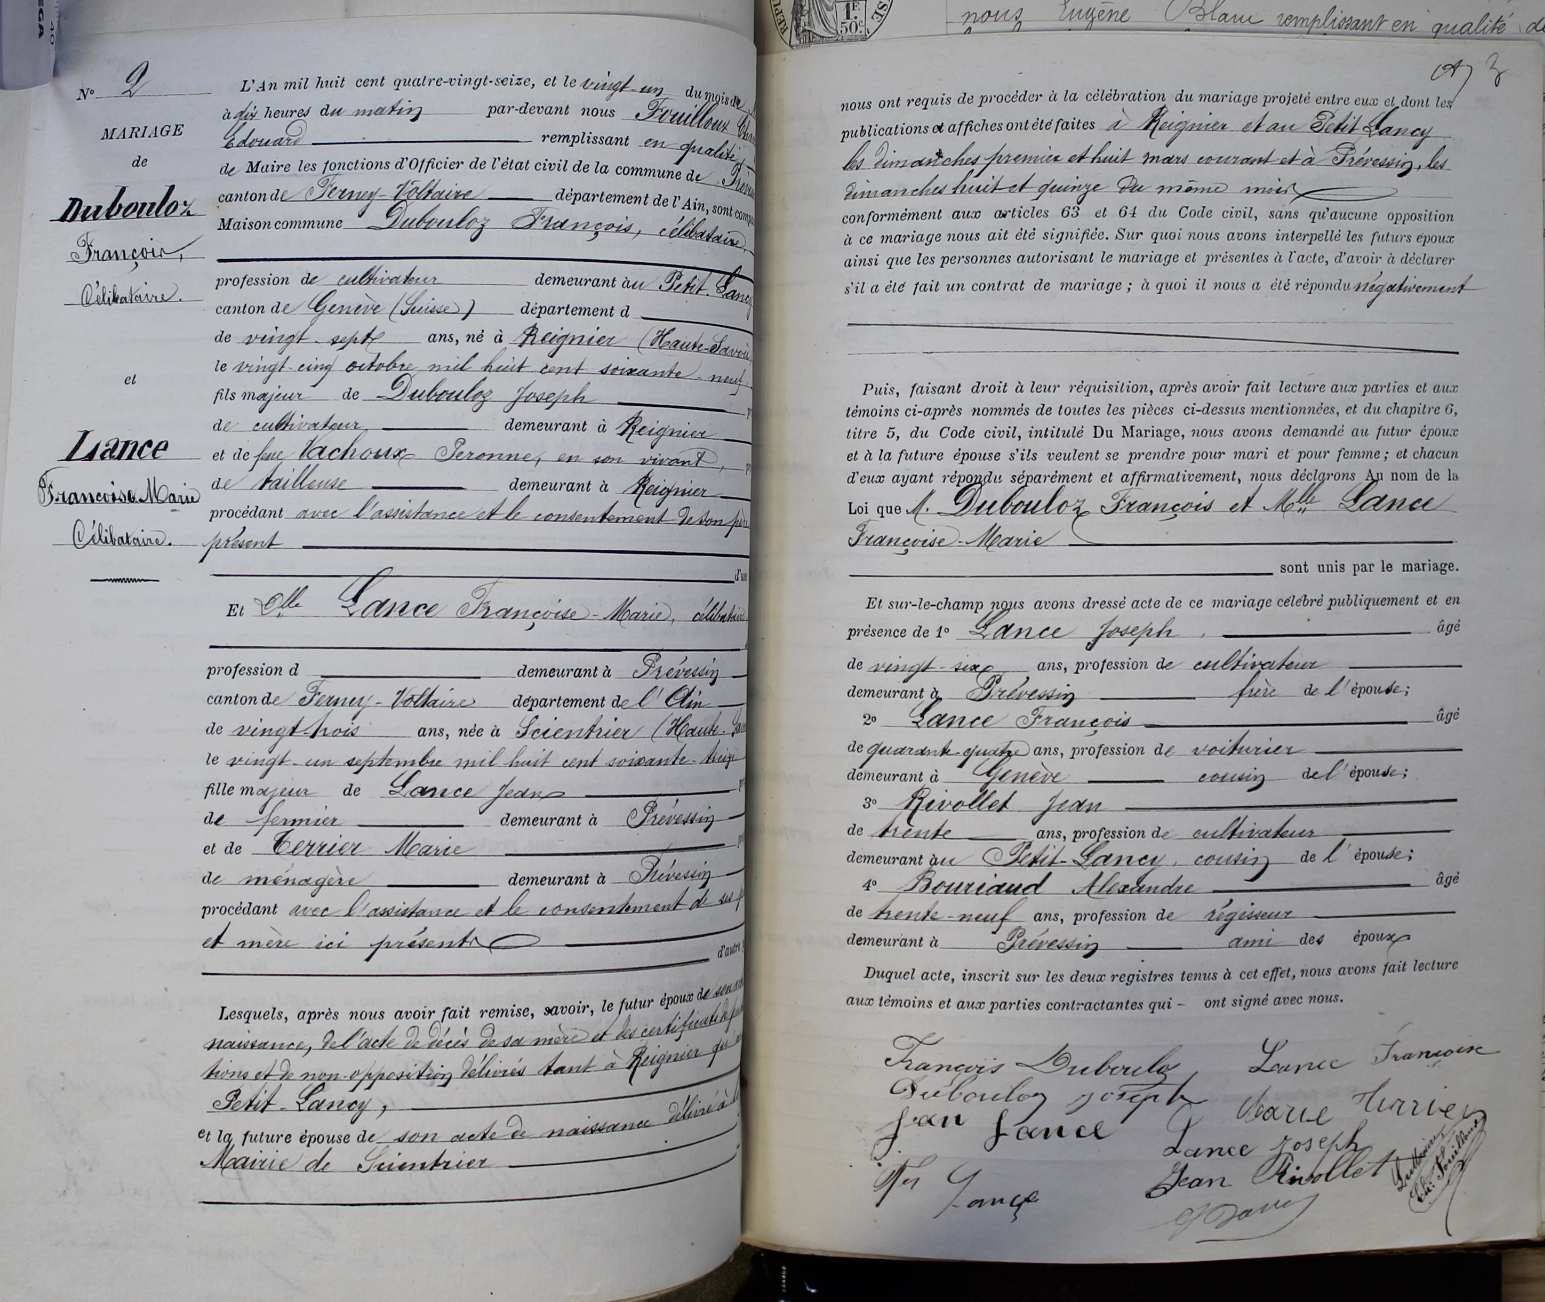 nous Eugène Blanc remplissant en qualité de
N° 2
MARIAGE
de
Dubouloz
François,
Célibataire.
et
Lance
Francoise Marie
Célibataire.
L'An mil huit cent quatre-vingt-seize, et le vingt-un du mois de
à dix heures du matin par-devant nous Fouilloux
Edouard remplissant en qualité
de Maire les fonctions d'Officier de l'état civil de la commune de
canton de Ferney-Voltaire département de l'Ain, sont
Maison commune Dubouloz François, célibataire,
profession de cultivateur demeurant au Petit-Lancy
canton de Genève (Suisse) département d
de vingt-sept ans, né à Reignier (Haute-Savoie
le vingt-cinq octobre mil huit cent soixante-neuf
fils majeur de Dubouloz Joseph
de cultivateur demeurant à Reignier
et de feue Vachoux Peronne, en son vivant,
de tailleuse demeurant à Reignier
procédant avec l'assistance et le consentement de son père
présent
Et Dlle Lance Françoise-Marie, célibataire
profession d demeurant à Prévessin
canton de Ferney-Voltaire département de l'Ain
de vingt-trois ans, née à Scientrier (Haute-
le vingt-un septembre mil huit cent soixante-treize
fille majeur de Lance Jean
de fermier demeurant à Prévessin
et de Terrier Marie
de ménagère demeurant à Prévessin
procédant avec l'assistance et le consentement de ses
et mère ici présents
d'autre
Lesquels, après nous avoir fait remise, savoir, le futur époux de son
naissance, de l'acte de décès de sa mère et des certificats de
tions et de non-opposition délivrés tant à Reignier
Petit-Lancy,
et la future épouse de son acte de naissance délivré à la
Mairie de Scientrier
nous ont requis de procéder à la célébration du mariage projeté entre eux et dont les
publications et affiches ont été faites à Reignier et au Petit Lancy
les dimanches premier et huit mars courant et à Prévessin, les
dimanches huit et quinze du même mois
conformément aux articles 63 et 64 du Code civil, sans qu'aucune opposition
à ce mariage nous ait été signifiée. Sur quoi nous avons interpellé les futurs époux
ainsi que les personnes autorisant le mariage et présentes à l'acte, d'avoir à déclarer
s'il a été fait un contrat de mariage ; à quoi il nous a été répondu négativement
Puis, faisant droit à leur réquisition, après avoir fait lecture aux parties et aux
témoins ci-après nommés de toutes les pièces ci-dessus mentionnées, et du chapitre 6,
titre 5, du Code civil, intitulé Du Mariage, nous avons demandé au futur époux
et à la future épouse s'ils veulent se prendre pour mari et pour femme ; et chacun
d'eux ayant répondu séparément et affirmativement, nous déclarons Au nom de la
Loi que M. Dubouloz François et Mlle Lance
Françoise-Marie
sont unis par le mariage.
Et sur-le-champ nous avons dressé acte de ce mariage célébré publiquement et en
présence de 1° Lance Joseph, âgé
de vingt-six ans, profession de cultivateur
demeurant à Prévessin frère de l'épouse;
2° Lance François âgé
de quarante-quatre ans, profession de voiturier
demeurant à Genève cousin de l'épouse;
3° Rivollet Jean
de trente ans, profession de cultivateur
demeurant au Petit-Lancy, cousin de l'épouse;
4° Bouriaud Alexandre âgé
de trente-neuf ans, profession de régisseur
demeurant à Prévessin ami des époux
Duquel acte, inscrit sur les deux registres tenus à cet effet, nous avons fait lecture
aux témoins et aux parties contractantes qui - ont signé avec nous.
François Dubouloz Lance Francoise
Dubouloz Joseph Marie Terrier
Jean Lance Lance Joseph
Lance Jean Rivollet